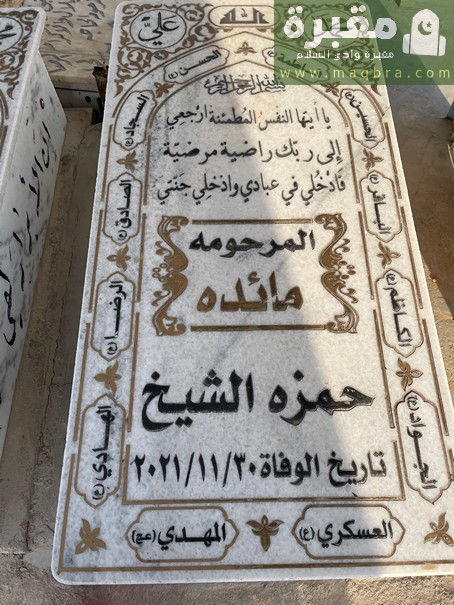 مقبرة
مقبرة وادي السلام
www.maqbra.com
الله
علي
الحسن (ع)
بسم الله الرحمن الرحيم
يا أيتها النفس المطمئنة ارجعي
إلى ربك راضية مرضية
فادخلي في عبادي وادخلي جنتي
المرحومه
مائده
حمزه الشيخ
تاريخ الوفاة ٢٠٢١/١١/٣٠
الحسين (ع)
السجاد (ع)
الباقر (ع)
الصادق (ع)
الكاظم (ع)
الرضا (ع)
الجواد (ع)
الهادي (ع)
العسكري (ع)
المهدي (عج)